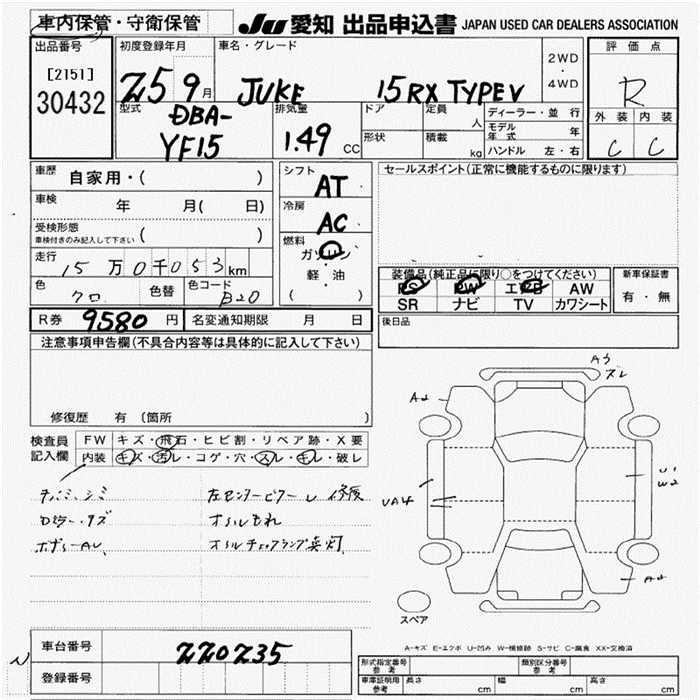 車内保管・守衛保管
JU 愛知 出品申込書 JAPAN USED CAR DEALERS ASSOCIATION
出品番号
[2151]
30432
初度登録年月
25 9月
車名・グレード
JUKE 15RX TYPE V
2WD
・
4WD
評価点
R
型式
DBA-
YF15
排気量
1.49 cc
ドア
形状
定員 人
積載 kg
ディーラー・並行
モデル年式 年
ハンドル 左・右
外装 内装
C C
車歴 自家用・( )
車検 年 月( 日)
受検形態
車検付きのみ記入して下さい ( )
走行 15万0千053km
色 クロ 色替 色コード B20
シフト
AT
冷房
AC
燃料
ガソリン
・
軽・油
( )
セールスポイント(正常に機能するものに限ります)
装備品(純正品に限り○をつけてください)
PS PW エアB AW
SR ナビ TV カワシート
新車保証書
有・無
R券 9580円 名変通知期限 月 日
後日品
注意事項申告欄(不具合内容等は具体的に記入して下さい)
修復歴 有 (箇所 )
検査員記入欄
FW キズ・飛石・ヒビ割・リペア跡・X要
内装 キズ・汚レ・コゲ・穴・スレ・キレ・破レ
左センターピラー 修復
オイルもれ
オイルチェックランプ点灯
A3
スレ
A2
UA4
U1
W2
A2
スペア
A-キズ E-エクボ U-凹み W-補修跡 S-サビ C-腐食 XX-交換済
車台番号 220235
登録番号
形式指定番号
参考
類別区分番号
参考
車庫証明用
参考
長さ cm 幅 cm 高さ cm